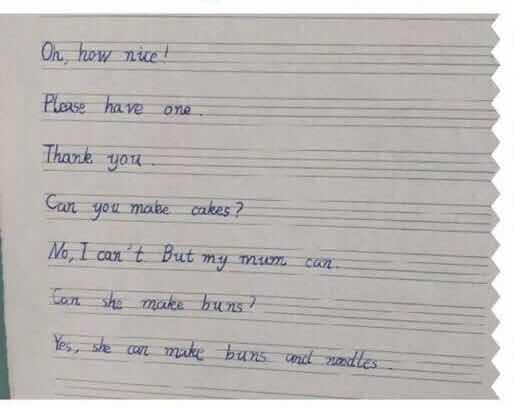 Oh, how nice!
Please have one.
Thank you.
Can you make cakes?
No, I can't But my mum can.
Can she make buns?
Yes, she can make buns and noodles.